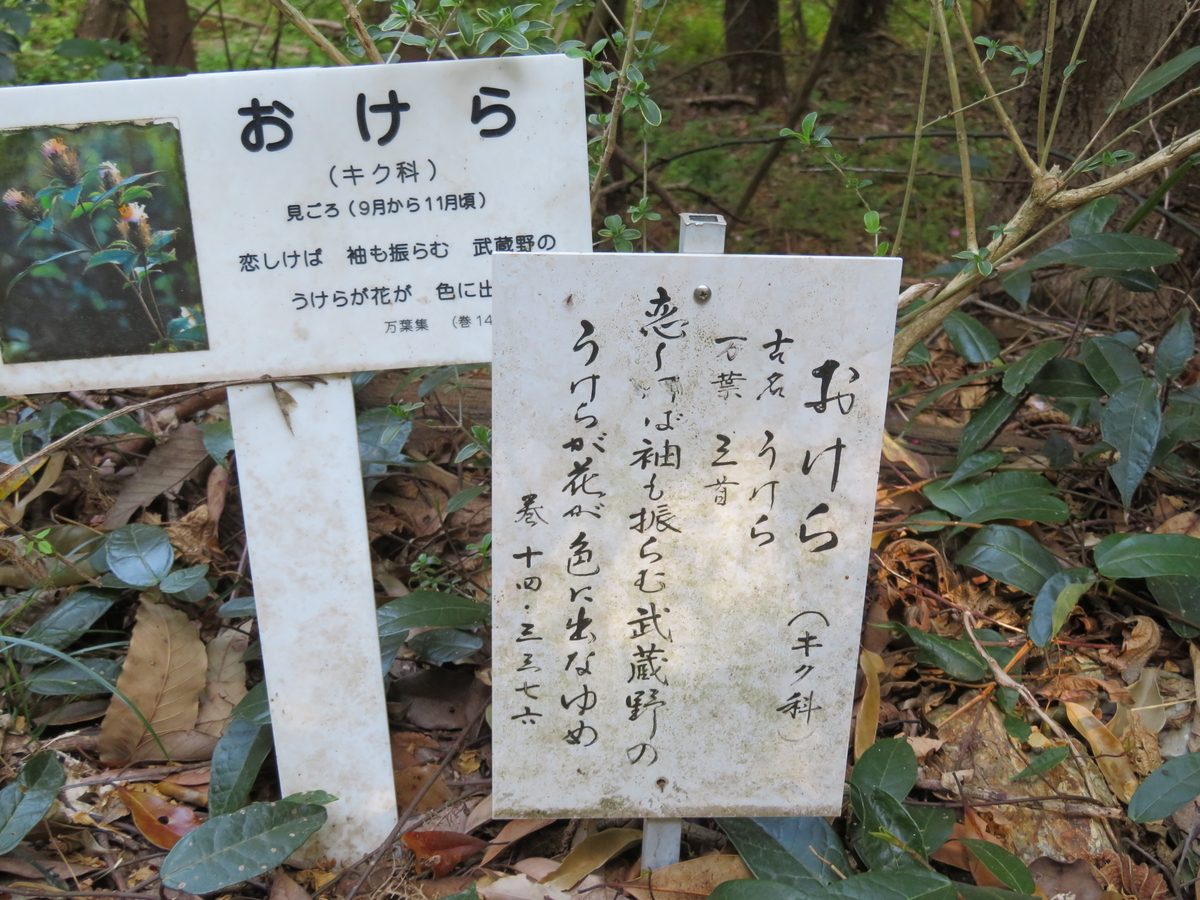 おけら
(キク科)
見ごろ(9月から11月頃)
恋しけば 袖も振らむ 武蔵野の
うけらが花が 色に出
万葉集 (巻14
おけら (キク科)
古名 うけら
万葉 三首
恋しけば袖も振らむ武蔵野の
うけらが花が色に出なゆめ
巻 十四・三三七六